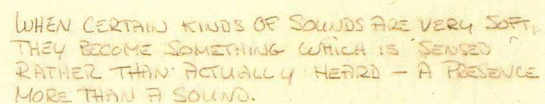 WHEN CERTAIN KINDS OF SOUNDS ARE VERY SOFT,
THEY BECOME SOMETHING WHICH IS "SENSED"
RATHER THAN ACTUALLY HEARD — A PRESENCE
MORE THAN A SOUND.